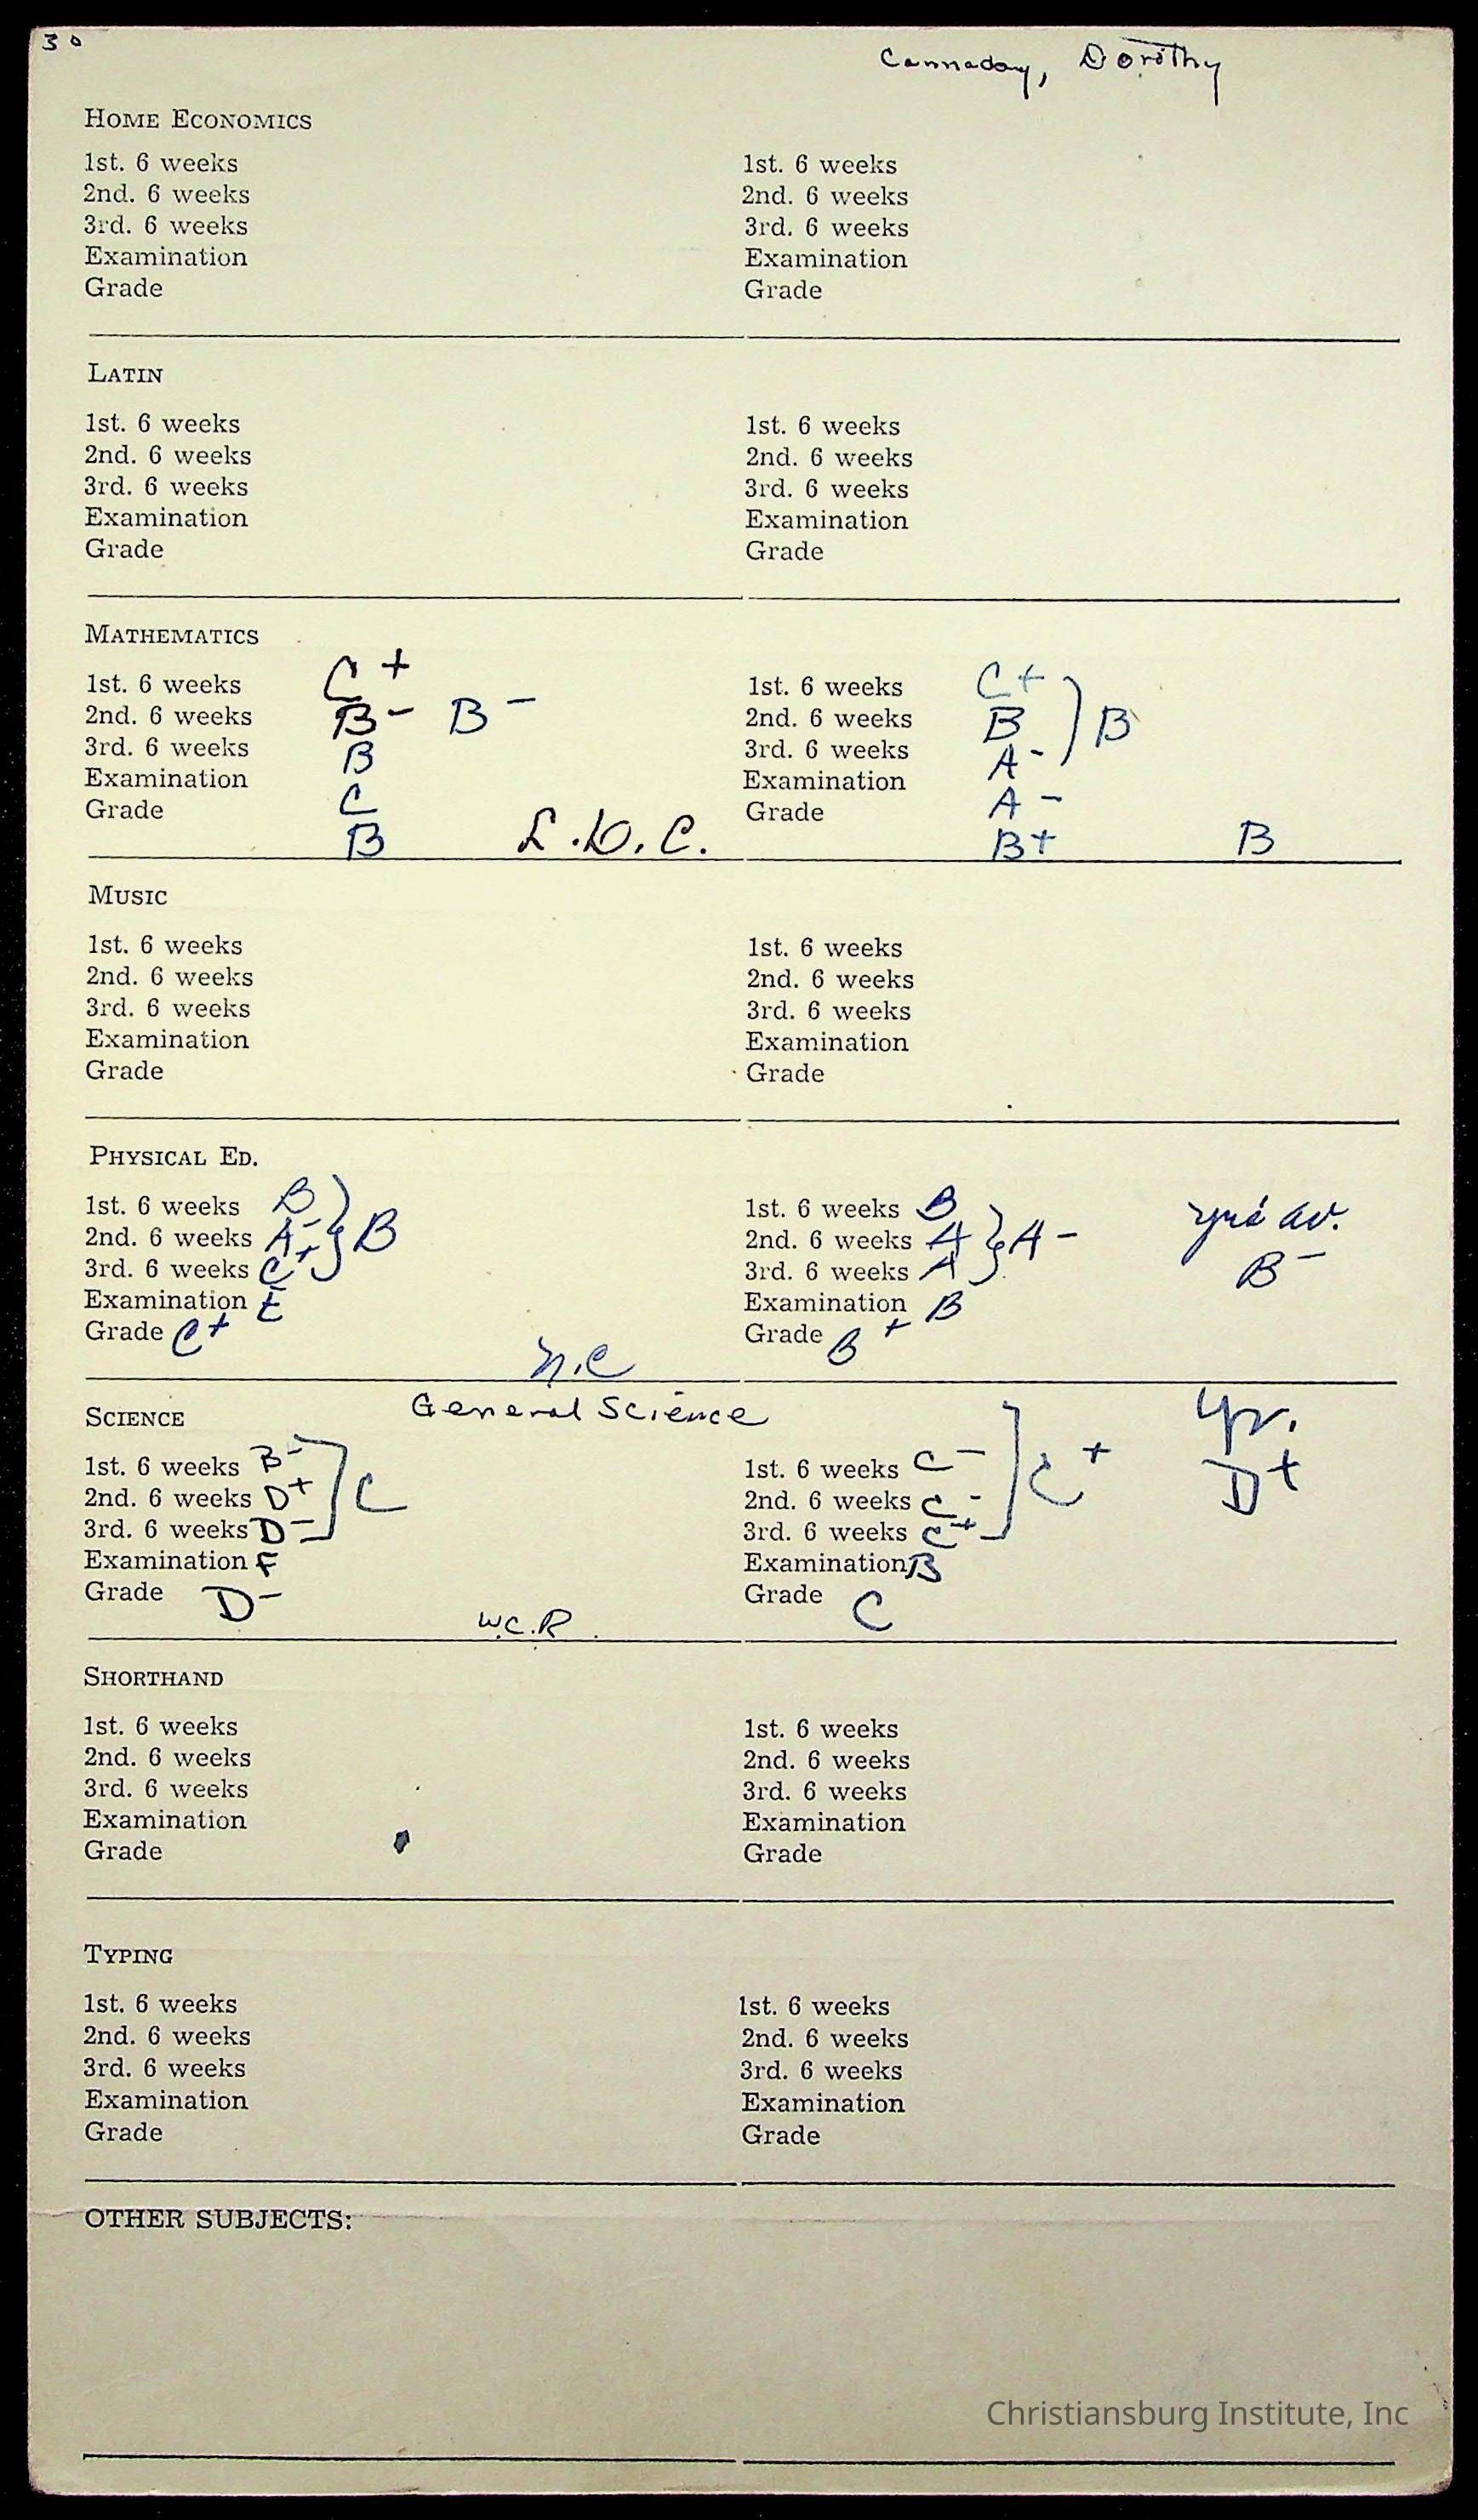 30
Cannaday, Dorothy
HOME ECONOMICS
1st. 6 weeks
2nd. 6 weeks
3rd. 6 weeks
Examination
Grade
1st. 6 weeks
2nd. 6 weeks
3rd. 6 weeks
Examination
Grade
LATIN
1st. 6 weeks
2nd. 6 weeks
3rd. 6 weeks
Examination
Grade
1st. 6 weeks
2nd. 6 weeks
3rd. 6 weeks
Examination
Grade
MATHEMATICS
1st. 6 weeks C+
2nd. 6 weeks B- B-
3rd. 6 weeks B
Examination C
Grade B
L.W.C.
1st. 6 weeks C+
2nd. 6 weeks B B
3rd. 6 weeks A-
Examination A-
Grade B+ B
MUSIC
1st. 6 weeks
2nd. 6 weeks
3rd. 6 weeks
Examination
Grade
1st. 6 weeks
2nd. 6 weeks
3rd. 6 weeks
Examination
Grade
PHYSICAL ED.
1st. 6 weeks B
2nd. 6 weeks A- B
3rd. 6 weeks C+
Examination E
Grade C+
N.C
1st. 6 weeks B
2nd. 6 weeks A A-
3rd. 6 weeks A
Examination B
Grade B+
av.
B-
SCIENCE General Science
1st. 6 weeks B-
2nd. 6 weeks D+ C
3rd. 6 weeks D-
Examination F
Grade D-
W.C.R.
1st. 6 weeks C-
2nd. 6 weeks C- C+
3rd. 6 weeks C+
Examination B
Grade C
Yr.
D+
SHORTHAND
1st. 6 weeks
2nd. 6 weeks
3rd. 6 weeks
Examination
Grade
1st. 6 weeks
2nd. 6 weeks
3rd. 6 weeks
Examination
Grade
TYPING
1st. 6 weeks
2nd. 6 weeks
3rd. 6 weeks
Examination
Grade
1st. 6 weeks
2nd. 6 weeks
3rd. 6 weeks
Examination
Grade
OTHER SUBJECTS:
Christiansburg Institute, Inc